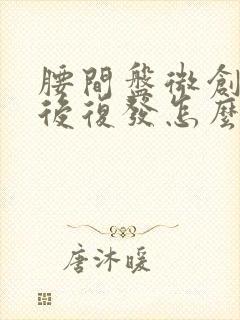 腰間盤微創
後復發怎麼
唐沐暖